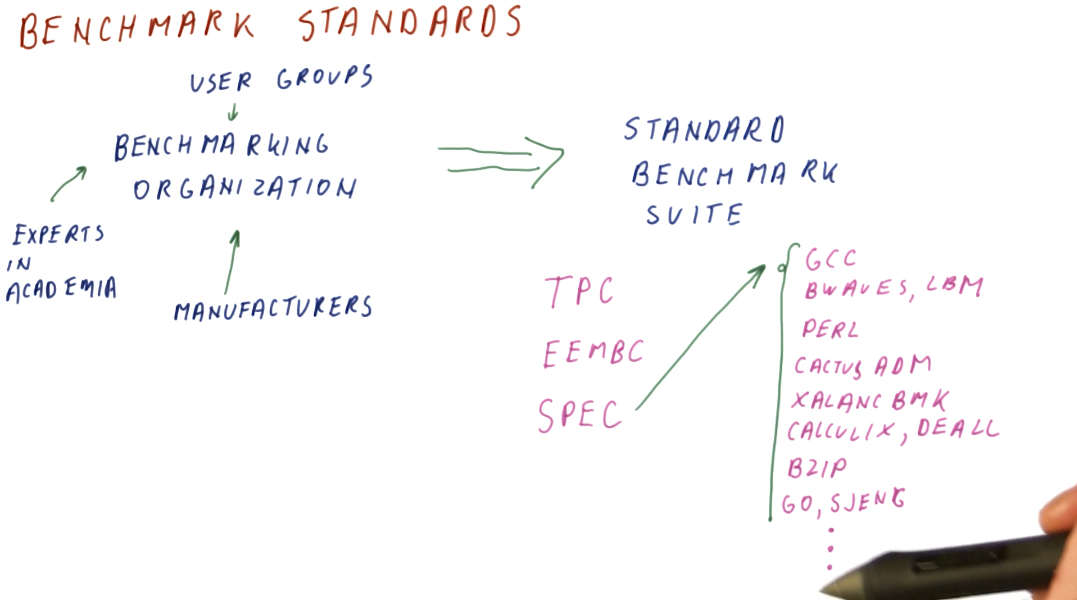 BENCHMARK STANDARDS
USER GROUPS
BENCHMARKING
ORGANIZATION
EXPERTS
IN
ACADEMIA
MANUFACTURERS
STANDARD
BENCHMARK
SUITE
TPC
EEMBC
SPEC
GCC
BWAVES, LBM
PERL
CACTUS ADM
XALANC BMK
CALCULIX, DEALL
BZIP
GO, SJENG